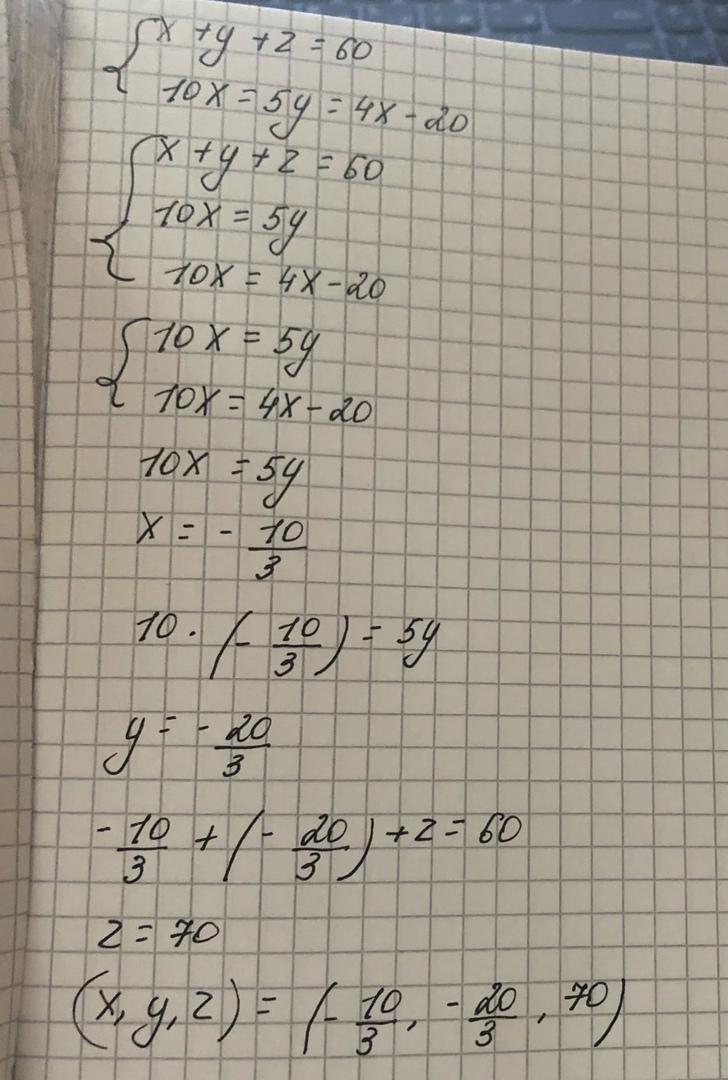 {x + y + z = 60
10x = 5y = 4x - 20
{x + y + z = 60
10x = 5y
10x = 4x - 20
{10x = 5y
10x = 4x - 20
10x = 5y
x = - 10/3
10 · (- 10/3) = 5y
y = - 20/3
- 10/3 + (- 20/3) + z = 60
z = 70
(x, y, z) = (- 10/3, - 20/3, 70)